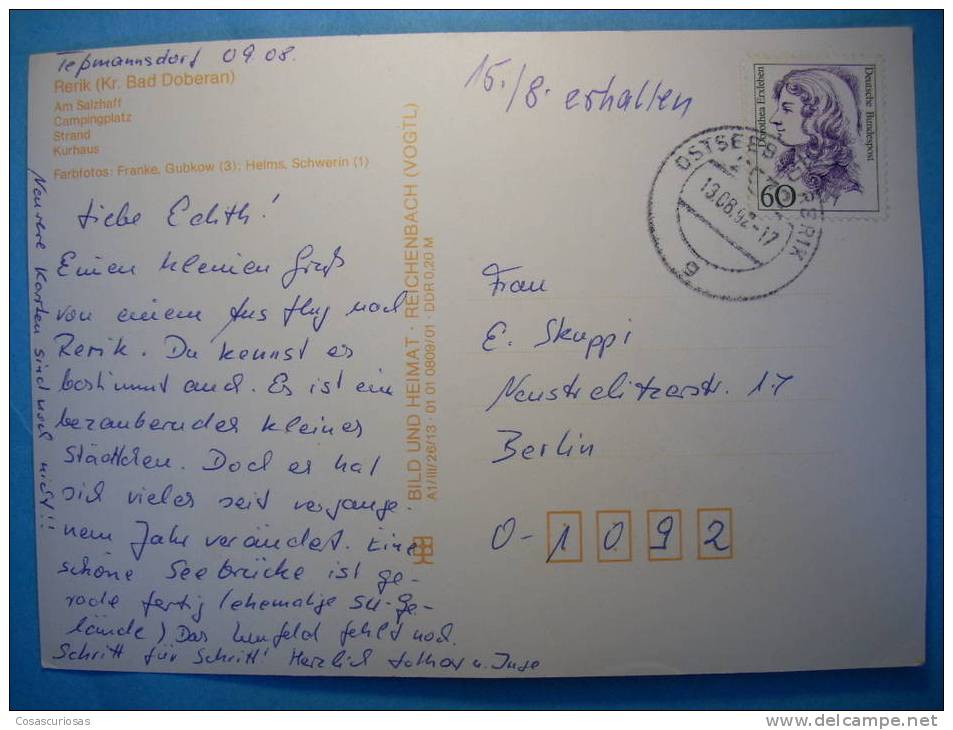 Teßmannsdorf 09.08.
Rerik (Kr. Bad Doberan)
Am Salzhaff
Campingplatz
Strand
Kurhaus
Farbfotos: Franke, Gubkow (3); Helms, Schwerin (1)
Liebe Edith!
Einen kleinen Gruß
von einem Ausflug nach
Rerik. Du kennst es
bestimmt auch. Es ist ein
bezauberndes kleines
Städtchen. Doch es hat
sich vieles seit vergange-
nem Jahr verändert. Eine
schöne Seebrücke ist ge-
rade fertig (ehemalige SU-Ge-
lände) Das Umfeld fehlt noch.
Schritt für Schritt! Herzlich Lothar u. Inge
Neuere Karten sind noch nicht!!
BILD UND HEIMAT · REICHENBACH (VOGTL)
A1/III/26/13 · 01 01 0809/01 · DDR 0,20 M
15./8. erhalten
Dorothea Erxleben
Deutsche Bundespost
60
OSTSEEBAD RERIK
13.08.92-17
Frau
E. Skuppi
Neustrelitzerstr. 17
Berlin
O-1092
Cosascuriosas
www.delcampe.net